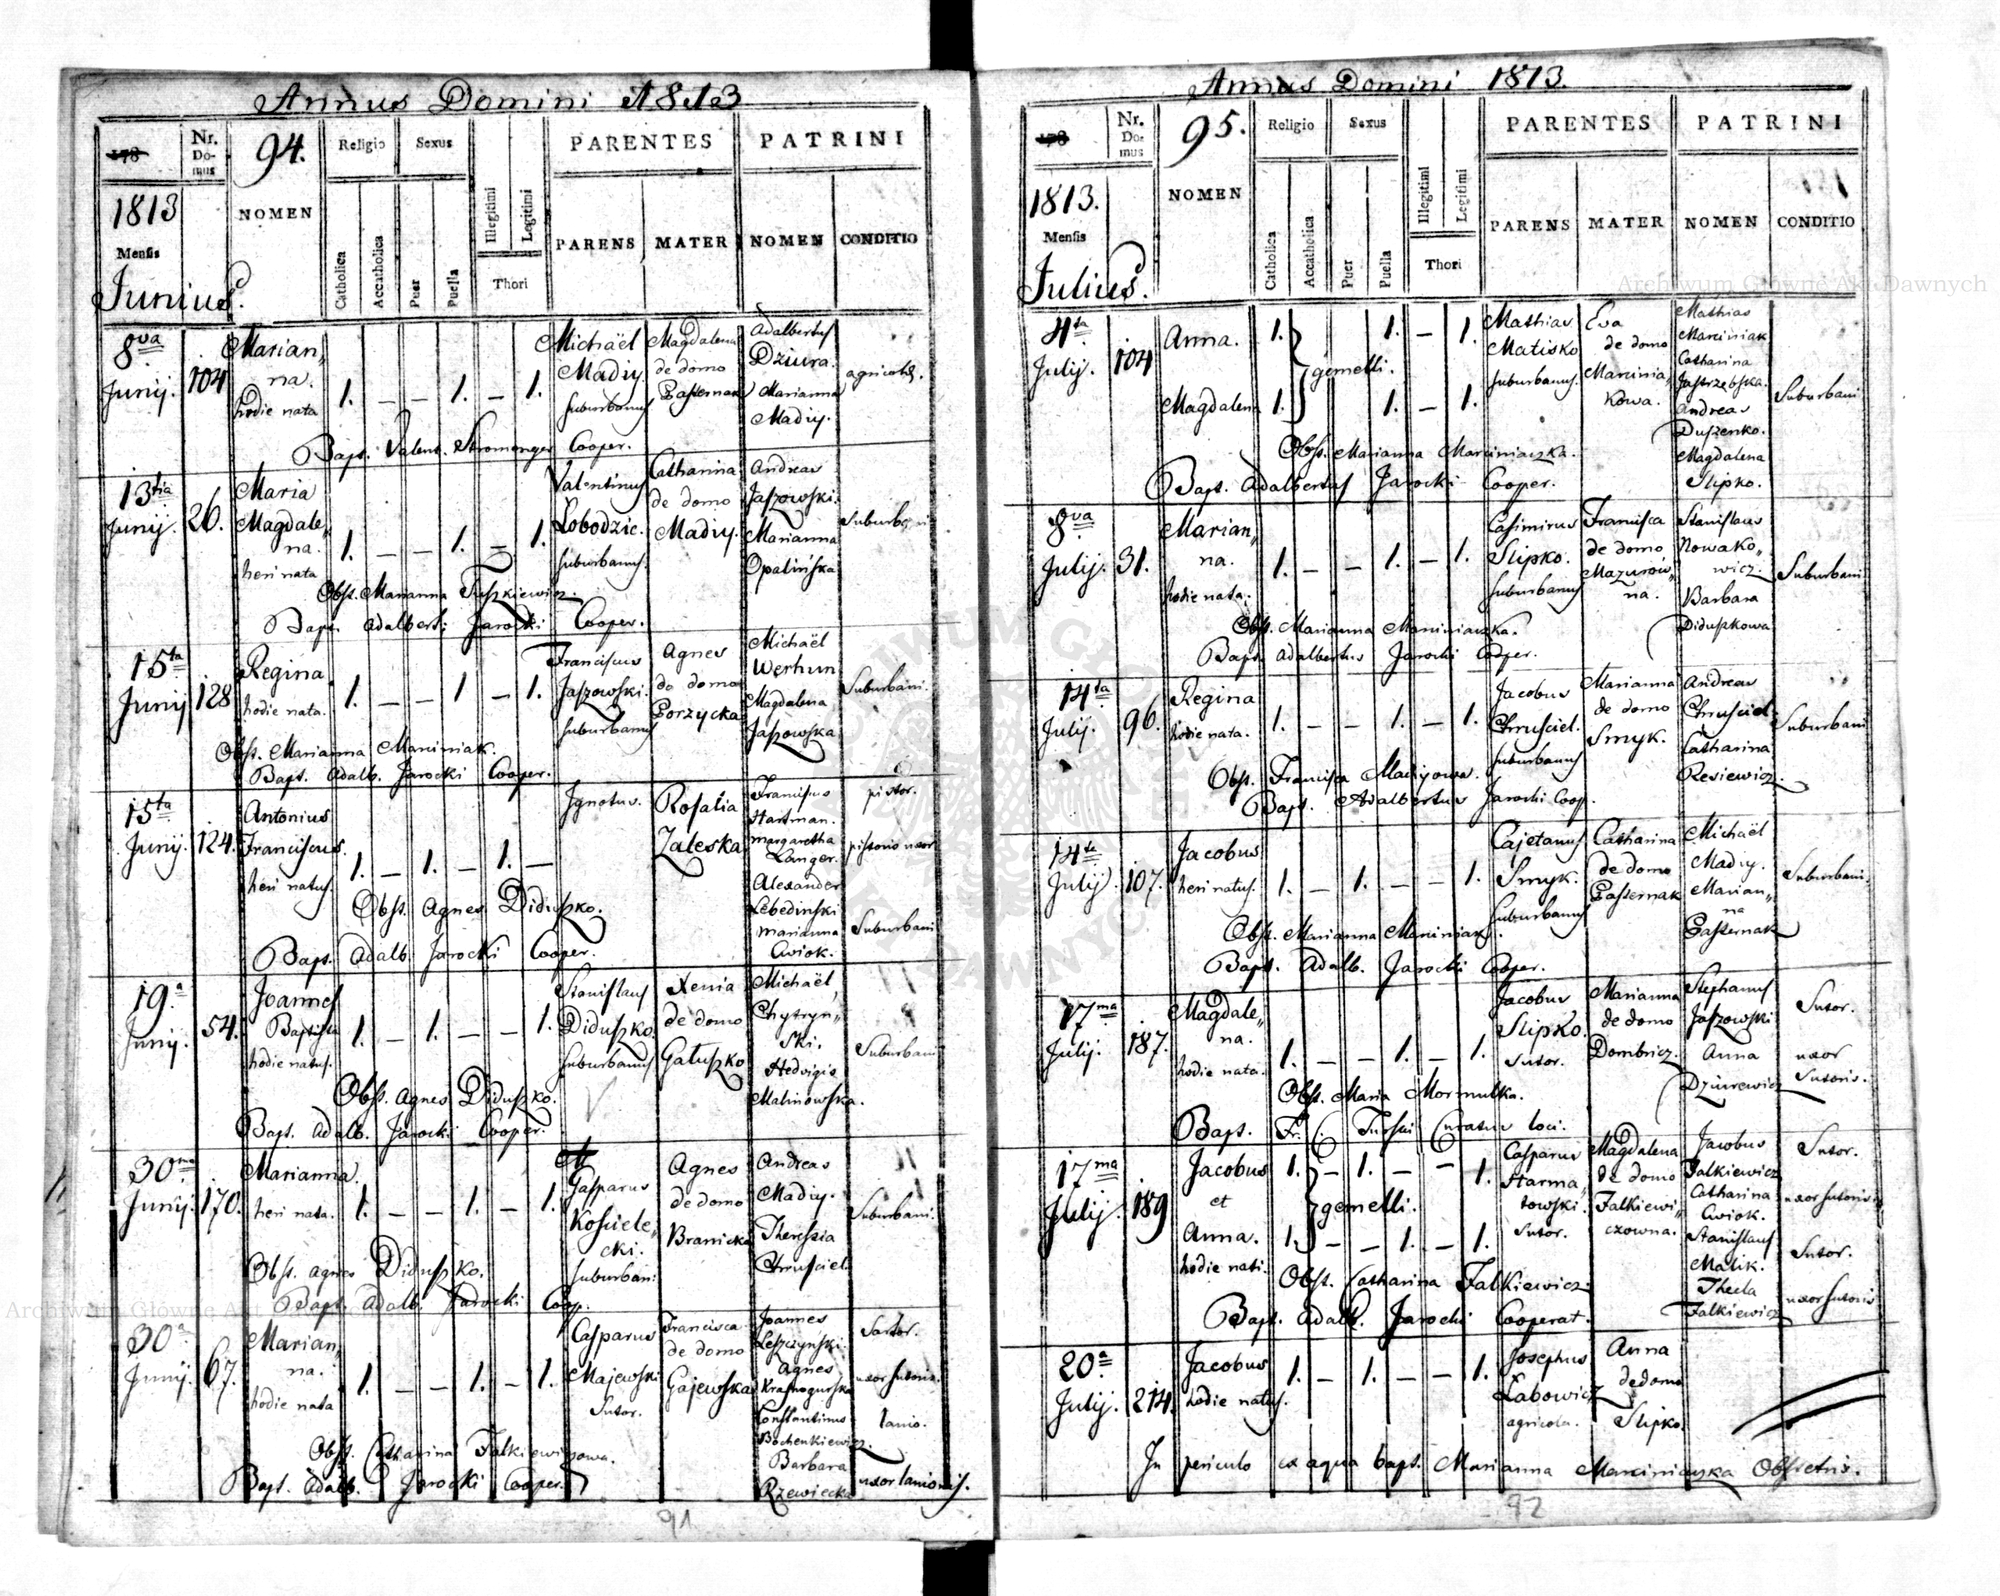 Annus Domini 1813
178
Nr. Domus
94.
Religio
Sexus
PARENTES
PATRINI
1813
Mensis
Junius.
NOMEN
Catholica
Accatholica
Puer
Puella
Illegitimi
Legitimi
Thori
PARENS
MATER
NOMEN
CONDITIO
8va Junij. 104
Marian„
na.
hodie nata
1. – – 1. – 1.
Michaël
Madij
suburbanus
Magdalena
de domo
Pasternak
Adalbertus
Dziura.
Marianna
Madij.
agricolæ.
Bapt. Valent. Stromenger Cooper.
13tia Junij. 26.
Maria
Magdale„
na.
heri nata
1. – – 1. – 1.
Valentinus
Lobodzic.
suburbanus.
Catharina
de domo
Madij.
Andreas
Jaszowski.
Marianna
Opalińska
Suburbani
Obst. Marianna Tuszkiewicz.
Bapt. Adalbert: Jarocki Cooper.
15ta Junij 128
Regina
hodie nata.
1. – – 1 – 1.
Franciscus
Jaszowski.
suburbanus
Agnes
de domo
Porzycka
Michaël
Werhun
Magdalena
Jaszowska
Suburbani.
Obst. Marianna Marciniak.
Bapt. Adalb. Jarocki Cooper.
15ta Junij. 124.
Antonius
Franciscus.
heri natus.
1. – 1. – 1. –
Ignotus.
Rosalia
Zaleska
Franciscus
Hartman.
Margaretha
Langer.
Alexander
Lebedinski
Marianna
Cwiok.
pistor.
pistoris uxor
Suburbani
Obst. Agnes Diduszko.
Bapt. Adalb. Jarocki Cooper.
19a Junij. 54.
Joannes
Baptista
hodie natus.
1. – 1. – – 1.
Stanislaus
Diduszko.
suburbanus
Xenia
de domo
Gałuszko
Michaël
Chytryń„
ski.
Hedvigis
Malinowska.
Suburbani
Obst. Agnes Diduszko.
Bapt. Adalb. Jarocki Cooper.
30ma Junij. 170.
Marianna.
heri nata.
1. – – 1. – 1.
Gasparus
Kosciele„
cki.
suburban:
Agnes
de domo
Branicka
Andreas
Madij.
Theressia
Chrusciel.
Suburbani.
Obst. Agnes Diduszko.
Bapt. Adalb. Jarocki Coop.
30a Junij. 67.
Marian„
na.
hodie nata
1. – – 1. – 1.
Casparus
Majewski
Sutor.
Francisca
de domo
Gajewska
Joannes
Leszczyński.
Agnes
Krasnogurska
Constantinus
Bochenkiewicz.
Barbara
Rzewiecka
Sartor.
uxor sutoris.
lanio.
uxor lanionis.
Obst. Catharina Falkiewiczowa.
Bapt. Adalb. Jarocki Cooper.
91
Annus Domini 1813.
178
Nr. Domus
95.
Religio
Sexus
PARENTES
PATRINI
1813.
Mensis
Julius.
NOMEN
Catholica
Accatholica
Puer
Puella
Illegitimi
Legitimi
Thori
PARENS
MATER
NOMEN
CONDITIO
4ta Julij. 104
Anna. 1. 1. – 1.
gemelli.
Magdalena 1. 1. – 1.
Mathias
Matisko
suburbanus.
Eva
de domo
Marcinia„
kowa.
Mathias
Marciniak
Catharina
Jastrzębska.
Andreas
Duszenko.
Magdalena
Slipko.
Suburbani
Obst. Marianna Marciniaczka.
Bapt. Adalbertus Jarocki Cooper.
8va Julij. 31.
Marian„
na.
hodie nata.
1. – – 1. – 1.
Casimirus
Slipko.
suburbanus
Francisca
de domo
Mazurów„
na.
Stanislaus
Nowako„
wicz.
Barbara
Diduszkowa
Suburbani
Obst. Marianna Marciniaczka.
Bapt. Adalbertus Jarocki Cooper.
14ta Julij. 96.
Regina
hodie nata.
1. – – 1. – 1.
Jacobus
Chrusciel.
suburbanus
Marianna
de domo
Smyk.
Andreas
Chrusciel
Catharina
Resiewicz.
Suburbani
Obst. Francisca Madijowa.
Bapt. Adalbertus Jarocki Coop.
14ta Julij. 107.
Jacobus
heri natus.
1. – 1. – – 1.
Cajetanus
Smyk.
suburbanus
Catharina
de domo
Pasternak
Michaël
Madij.
Marian„
na
Pasternak
Suburbani.
Obst. Marianna Marciniak.
Bapt. Adalb. Jarocki Cooper.
17ma Julij. 187.
Magdale„
na.
hodie nata.
1. – – 1. – 1.
Jacobus
Slipko.
Sutor.
Marianna
de domo
Dombicz.
Stephanus
Jaszowski
Anna
Dziurewicz
Sutor.
uxor
Sutoris.
Obst. Maria Mormulka.
Bapt. Fr. Turski Curatus loci.
17ma Julij. 189
Jacobus 1. – 1. – – 1.
et
gemelli.
Anna. 1. – – 1. – 1.
hodie nati.
Casparus
Harma„
towski.
Sutor.
Magdalena
de domo
Falkiewi„
czowna.
Jacobus
Falkiewicz
Catharina
Cwiok.
Stanislaus
Malik.
Thecla
Falkiewicz
Sutor.
uxor sutoris.
Sutor.
uxor sutoris
Obst. Catharina Falkiewicz.
Bapt. Adalb. Jarocki Cooperat.
20a Julij. 214.
Jacobus
hodie natus.
1. – 1. – – 1.
Josephus
Łabowicz
agricola.
Anna
de domo
Slipko.
In periculo ex aqua bapt. Marianna Marciniaczka Obstetris.
92
Archiwum Główne Akt Dawnych